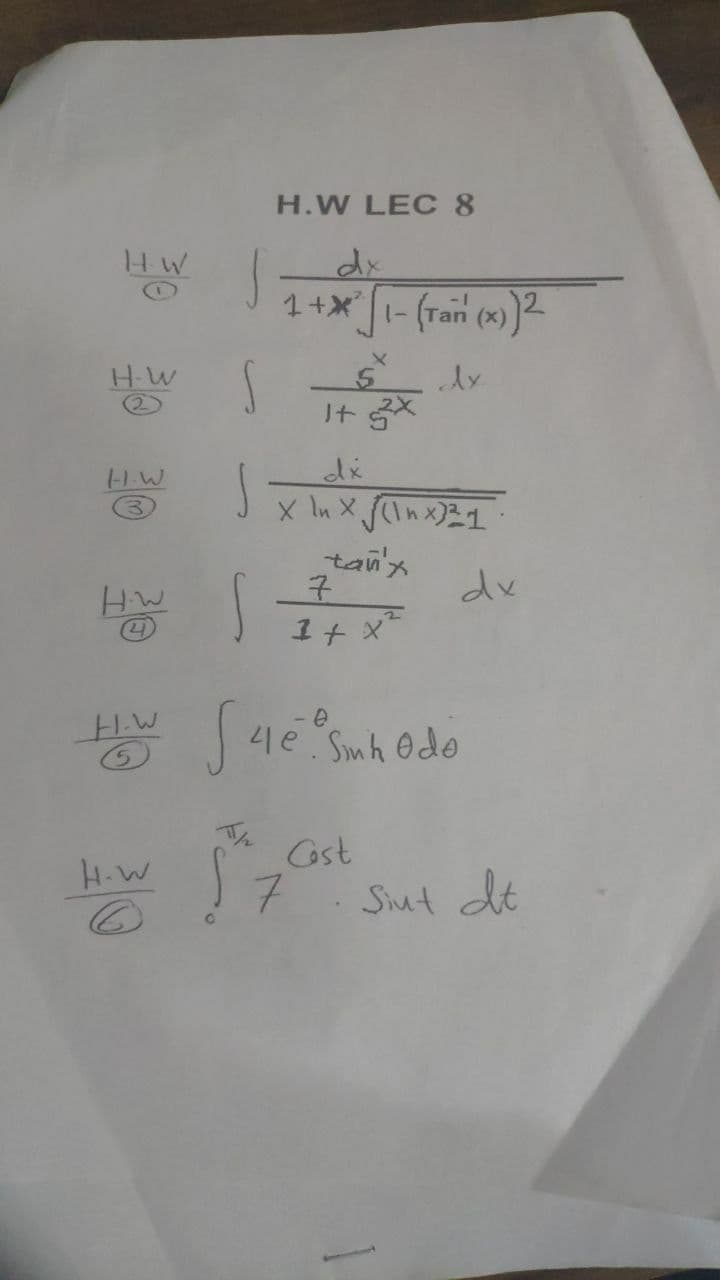 H.W LEC 8
H.W 1 ∫ dx / 1+x² √1-(Tan⁻¹(x))²
H.W 2 ∫ 5^x / 1+5^2x .dx
H.W 3 ∫ dx / x ln x √(ln x)²-1 .
H.W 4 ∫ 7^tan⁻¹x / 1+x² dx
H.W 5 ∫ 4e^-θ . Sinh θ dθ
H.W 6 ∫₀^π/2 7^Cost . Sint dt